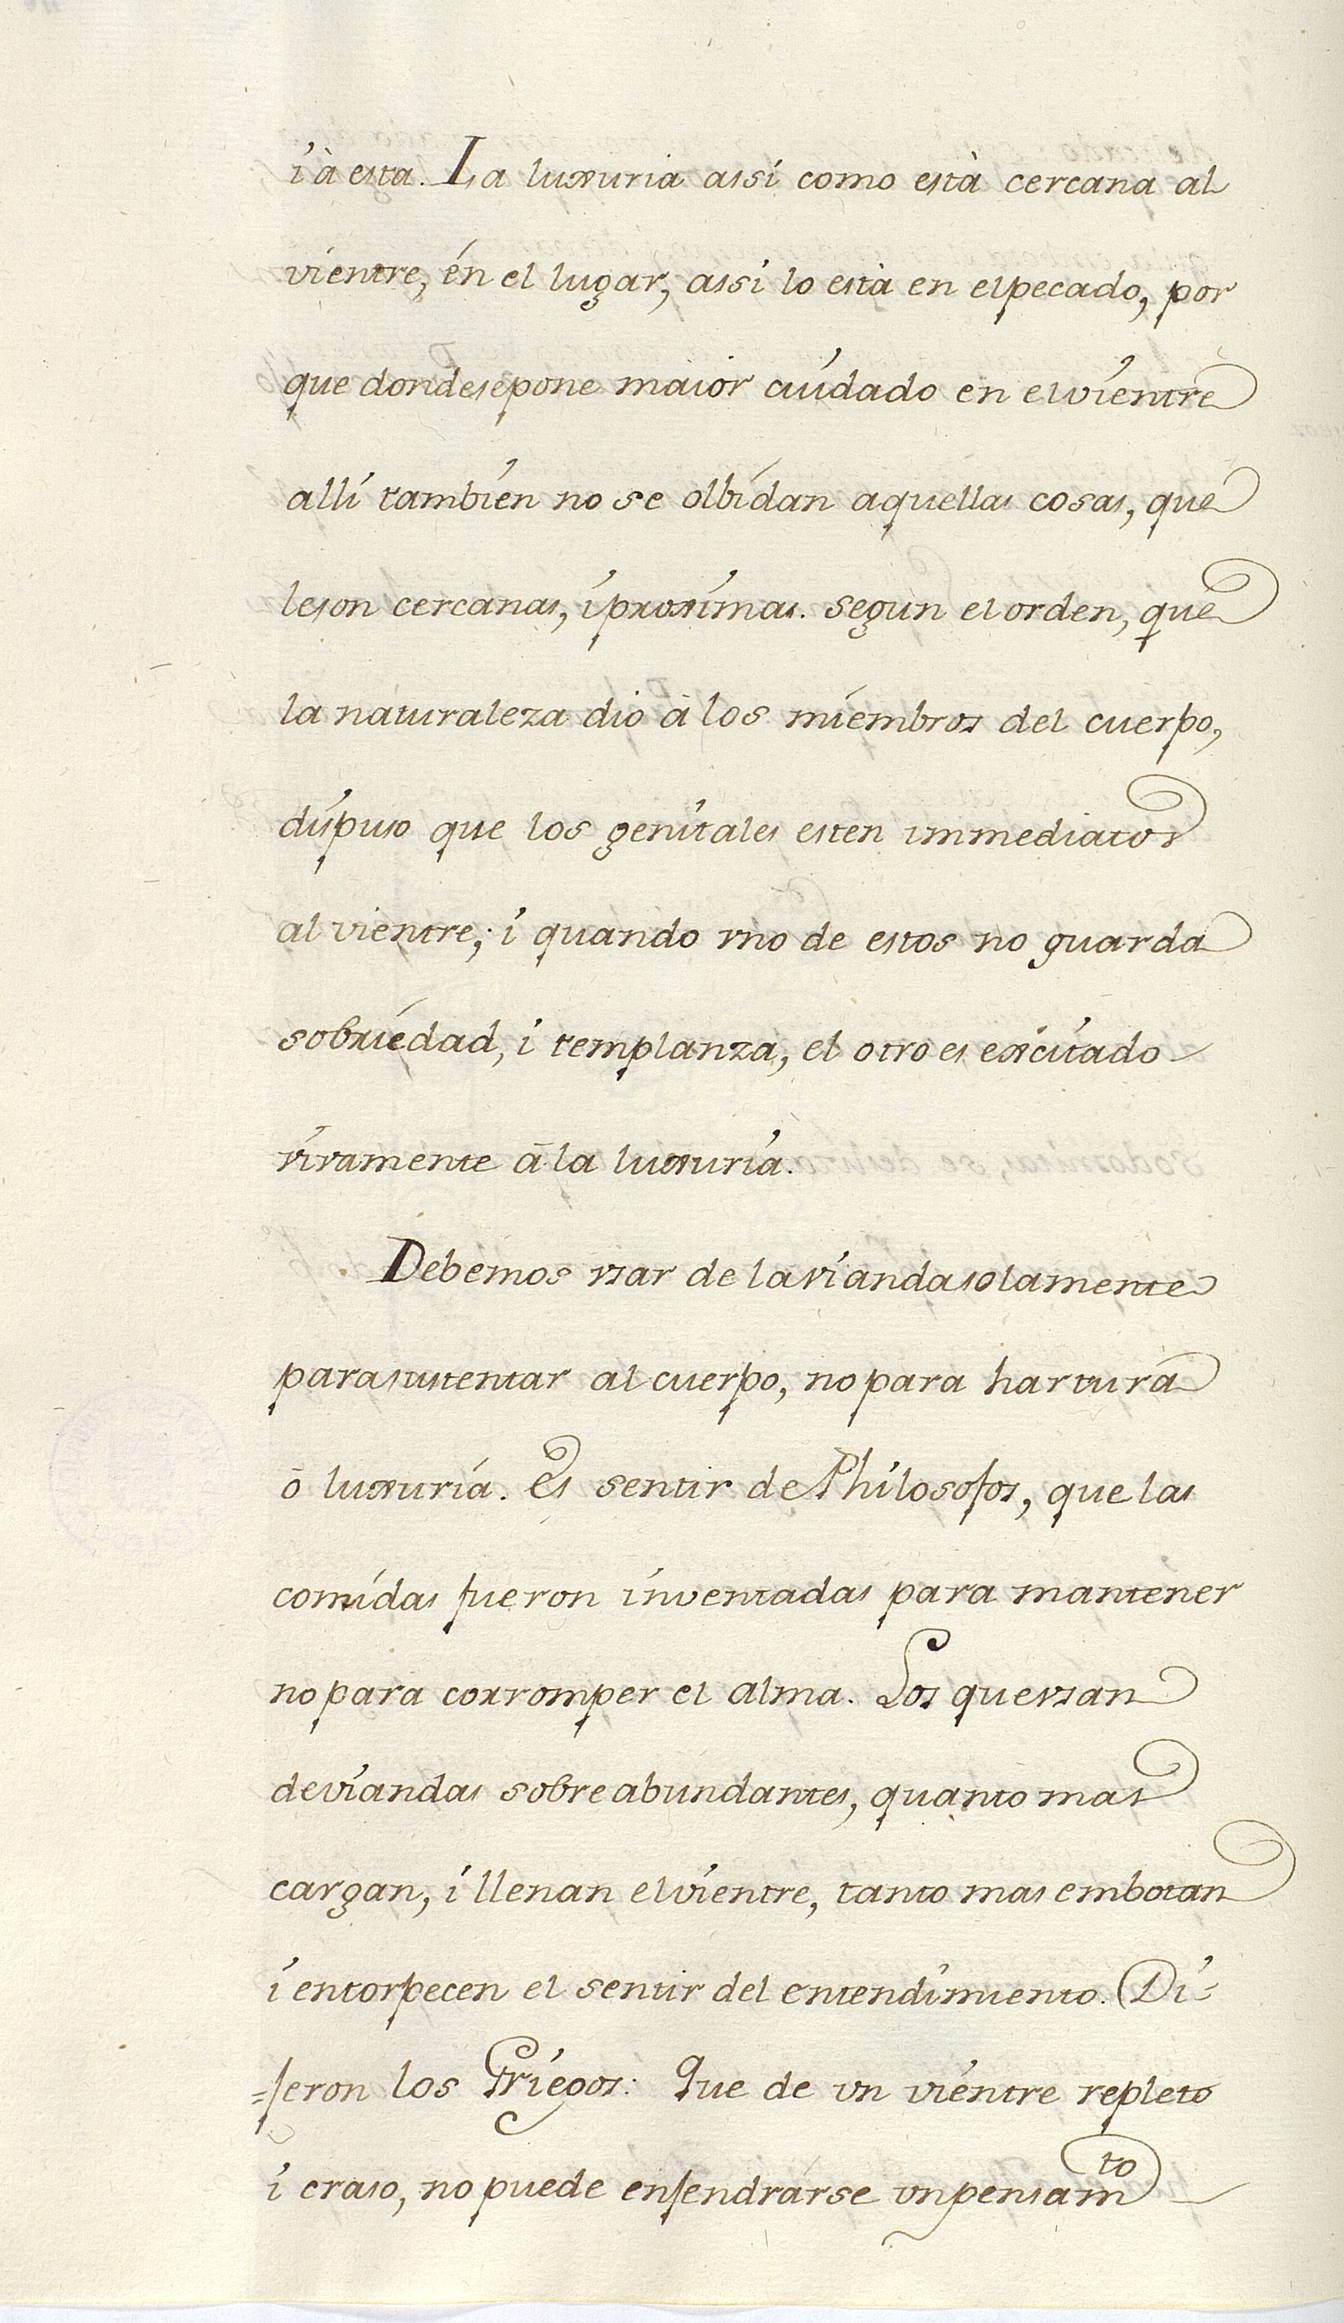 i à esta. La luxuria assi como està cercana al
vientre, én el lugar, assi lo està en el pecado, por
que donde se pone maior cuidado en el vientre
alli tambien no se olbidan aquellas cosas, que
le son cercanas, i proximas. segun el orden, que
la naturaleza dio à los miembros del cuerpo,
dispuso que los genitales esten immediatos
al vientre; i quando vno de estos no guarda
sobriedad, i templanza, el otro es excitado
vivamente à la luxuria.
Debemos vsar de la vianda solamente
para sustentar al cuerpo, no para hartura
ō luxuria. Es sentir de Philosofos, que las
comidas fueron inventadas para mantener
no para corromper el alma. Los que vsan
de viandas sobreabundantes, quanto mas
cargan, i llenan el vientre, tanto mas embotan
i entorpecen el sentir del entendimiento. Di=
=jeron los Griegos: Que de vn vientre repleto
i craso, no puede enjendrarse vn pensam<sup>to</sup>